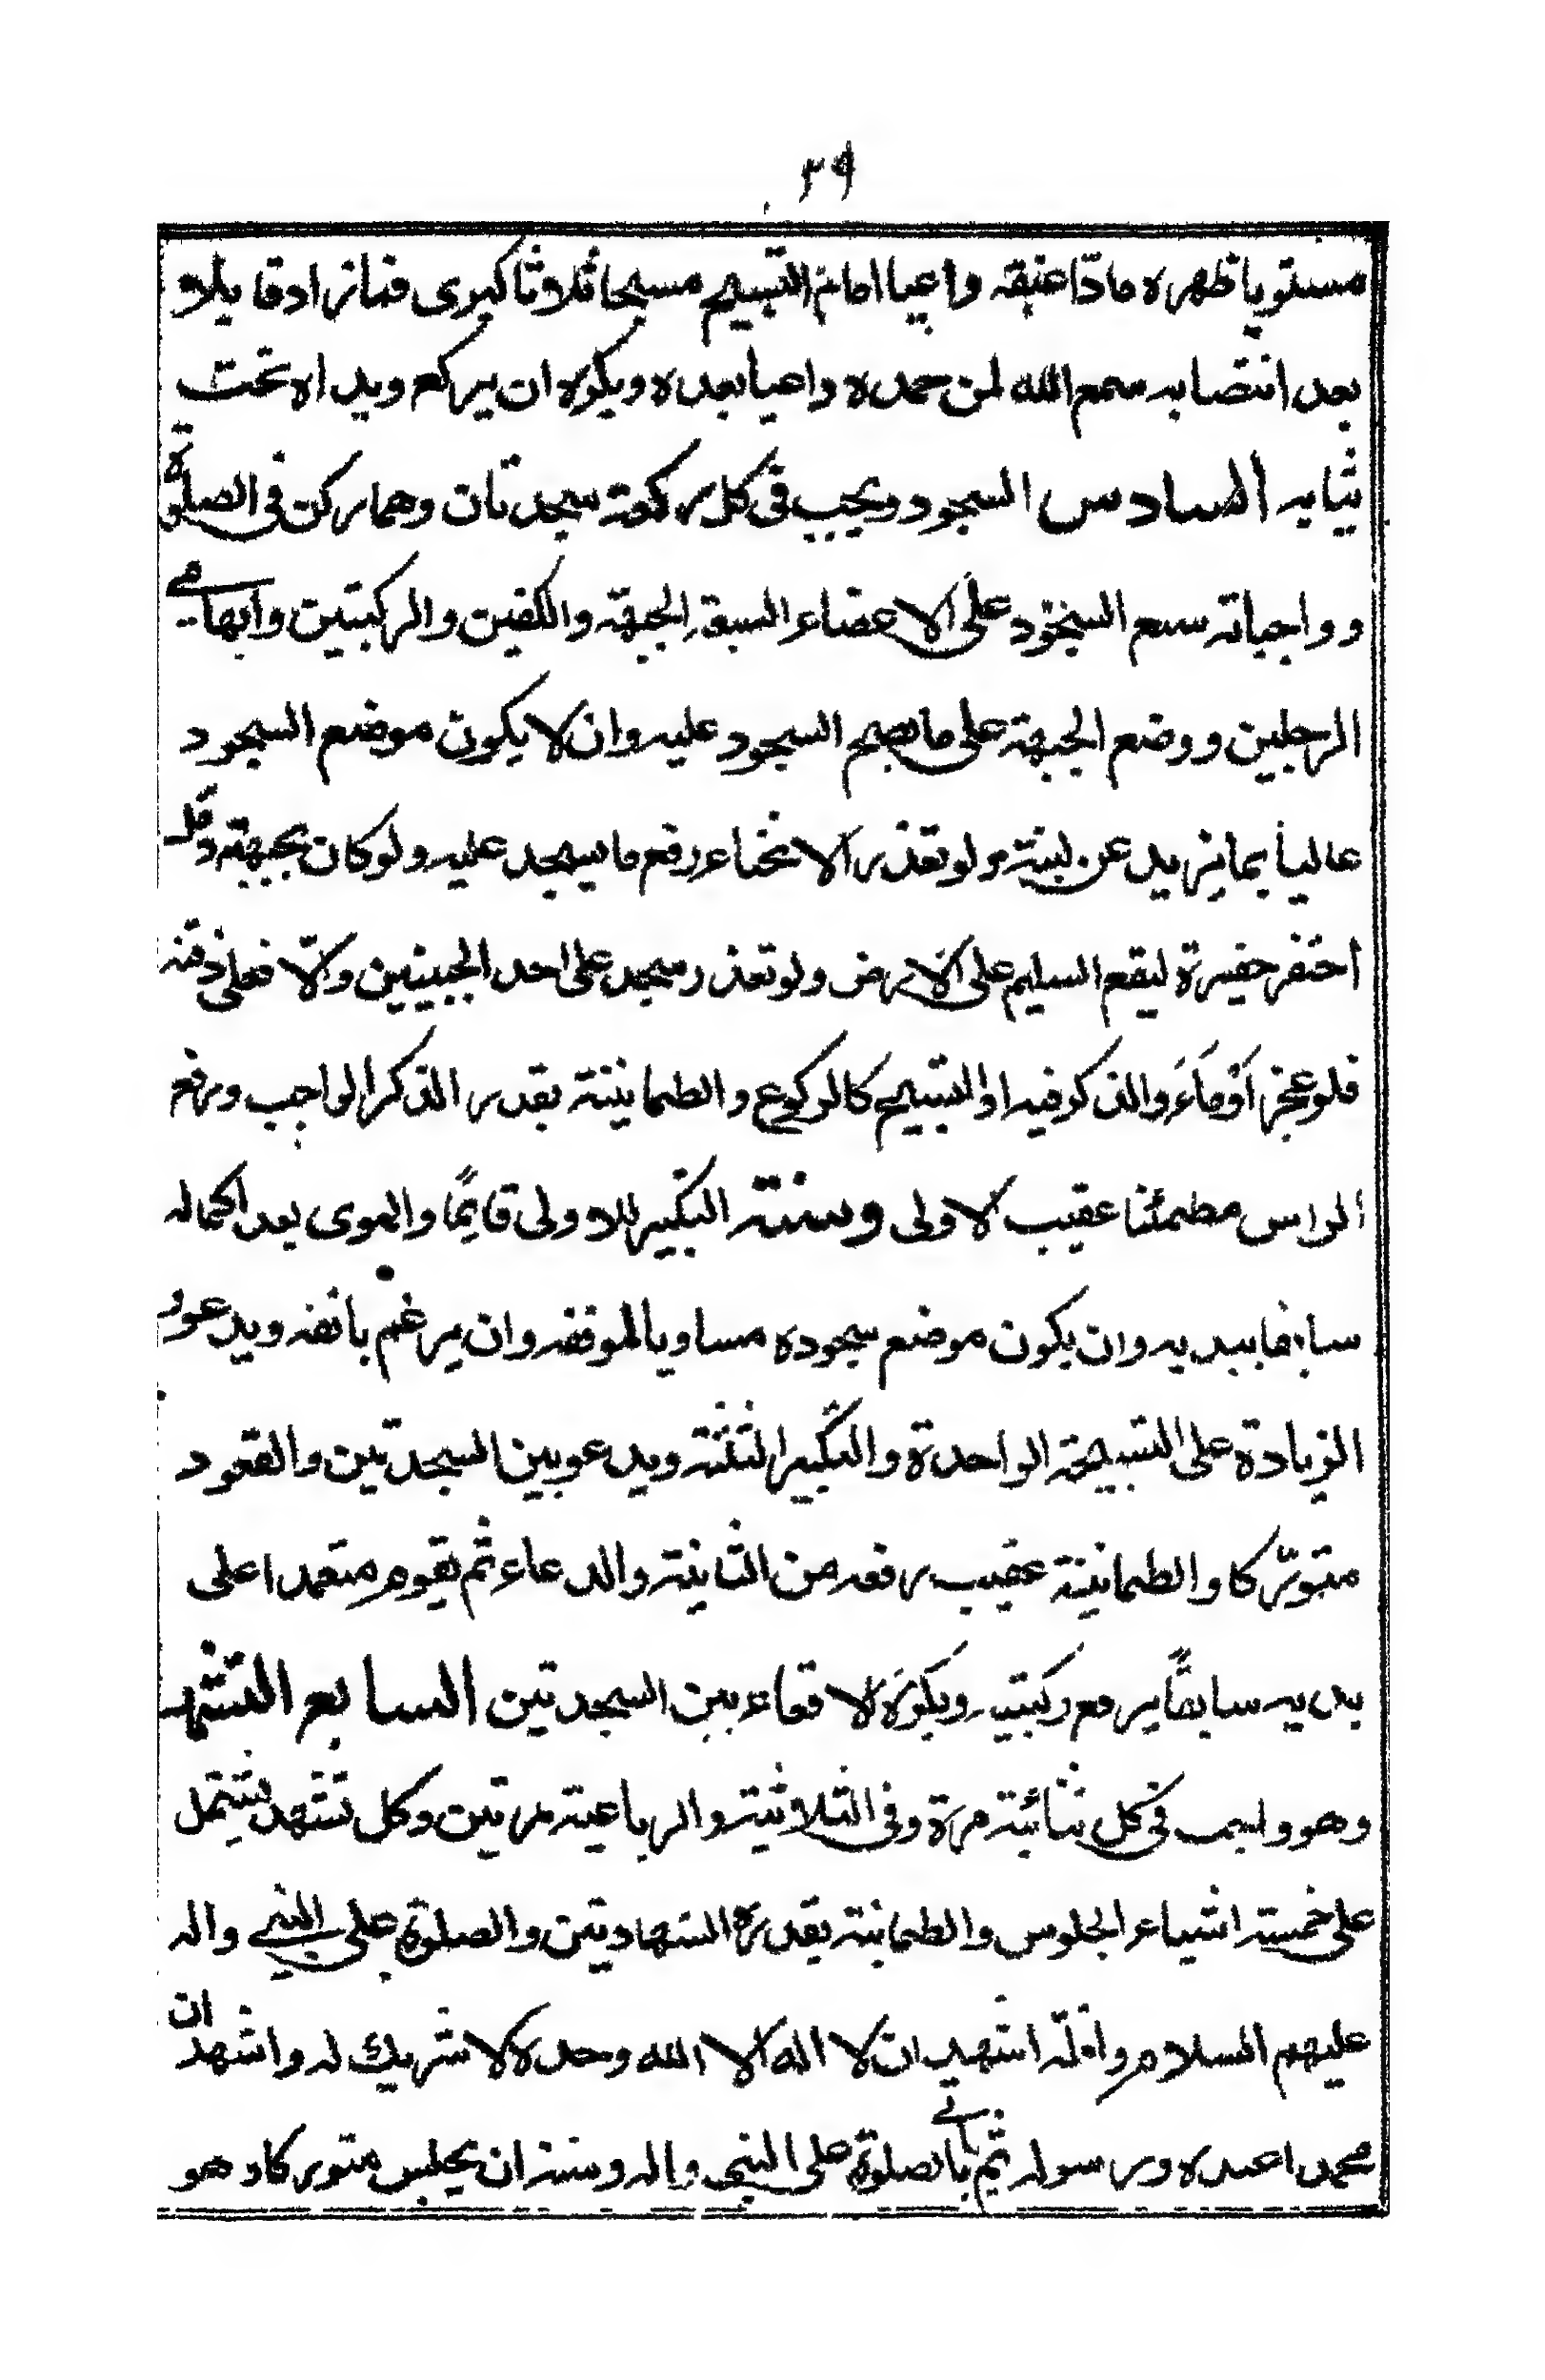 ٣٩
مستويا ظهره مادّا عنقه داعيا امام التسبيح مسبحا ثلاثا كبرى فما زاد قايلا
بعد انتصابه سمع الله لمن حمده داعيا بعده ويكره ان يركع ويداه تحت
ثيابه السادس السجود ويجب فى كل ركعة سجدتان وهما ركن فى الصلوة
وواجباته سبع السجود على الاعضاء السبعة الجبهة والكفين والركبتين وابهامي
الرجلين ووضع الجبهة على ما يصح السجود عليه وان لا يكون موضع السجود
عاليا بما يزيد عن لبنة ولو تعذر الانحناء رفع ما يسجد عليه ولو كان بجبهته دمل
احتفر حفيرة ليقع السليم على الارض ولو تعذر سجد على احد الجبينين والّا فعلى ذقنه
فلو عجز اَوْمَاءَ والذكر فيه او التسبيح كالركوع والطمانينة بقدر الذكر الواجب ورفع
الراس مطمئنا عقيب الاولى وسنته التكبير للاولى قايمًا والهوى بعد اكماله
سابقا بيديه وان يكون موضع سجوده مساويا لموقفه وان يرغم بانفه ويدعو و
الزيادة على التسبيحة الواحدة والتكبير الثلثة ويدعو بين السجدتين والقعود
متورّكا والطمانينة عقيب رفعه من الثانية والدعاء ثم يقوم متعمدا على
يديه سابقًا برفع ركبتيه ويكره الاقعاء بين السجدتين السابع التشهد
وهو واجب فى كل ثنائية مرة وفى الثلاثية والرباعية مرتين وكل تشهد يشتمل
على خمسة اشياء الجلوس والطمانينة بقدره الشهادتين والصلوة على النبي واله
عليهم السلام واقلّه اشهد ان لا اله الا الله وحده لا شريك له واشهد ان
محمدا عبده ورسوله ثم ياتى بالصلوة على النبى واله وسننه ان يجلس متوركا وهو